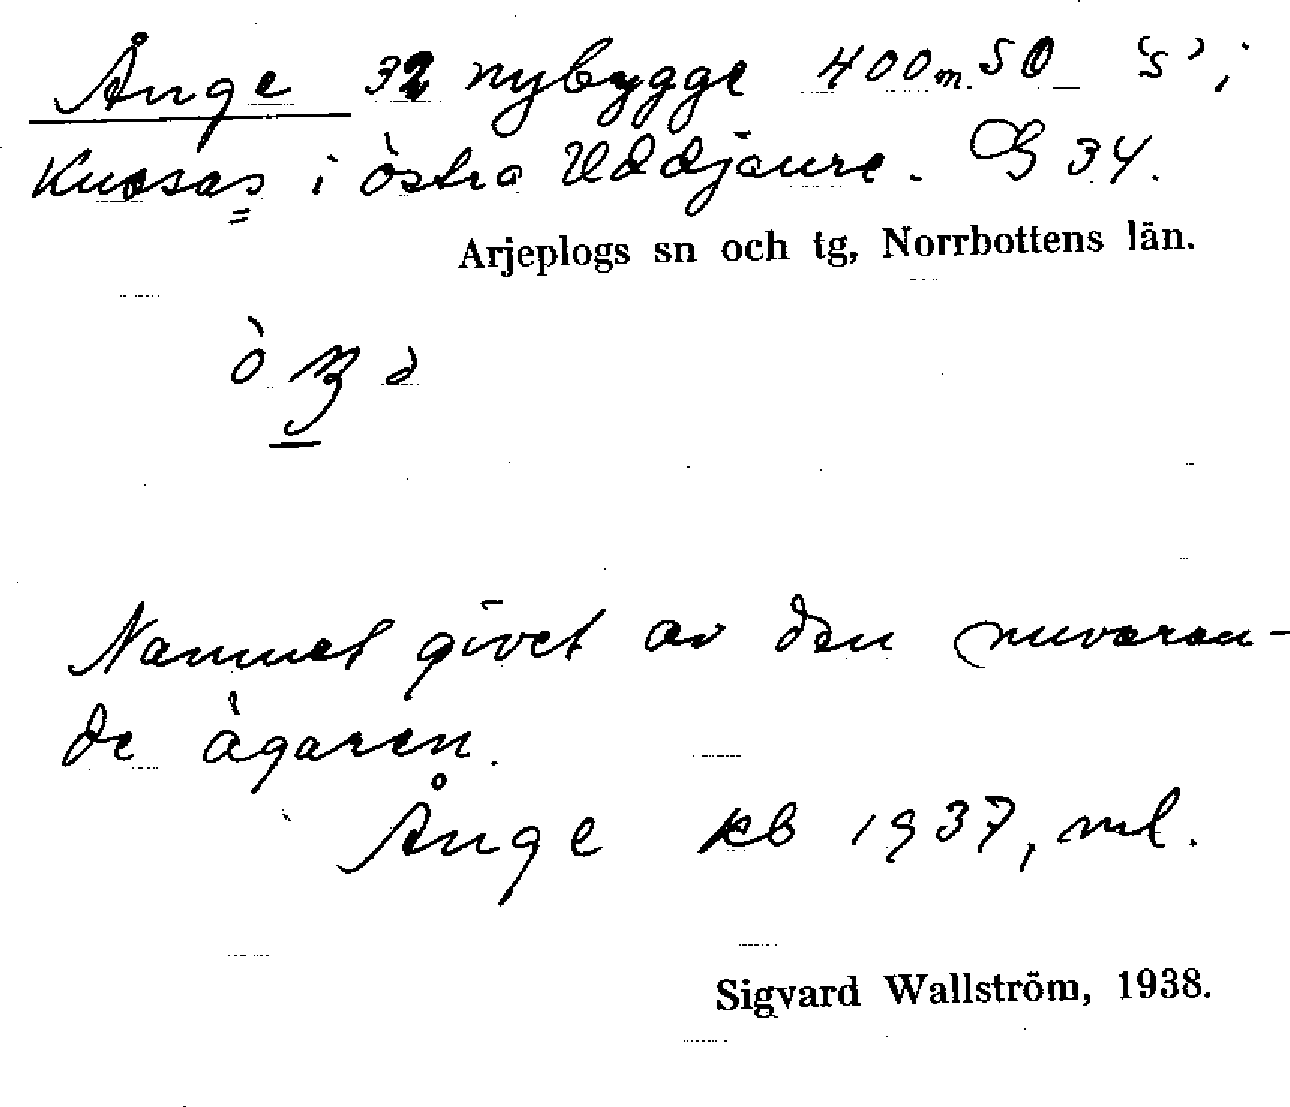 Ånge 32 nybygge 400 m. SO 's' i
Kuosas i östra Uddjaure. G 34.
Arjeplogs sn och tg, Norrbottens län.
Namnet givet av den nuvaran-
de ägaren.
Ånge kb 1937, ml.
Sigvard Wallström, 1938.